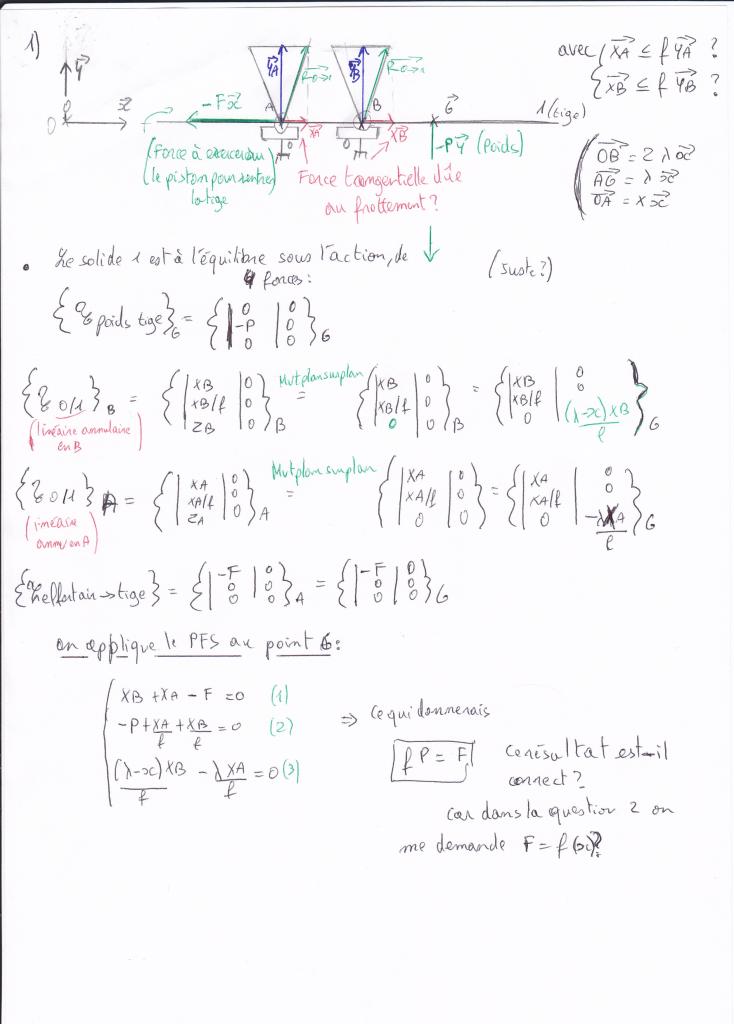 1)
avec { XA ≤ f YA ?
{ XB ≤ f YB ?
Y
O
x
-Fx
YA
R0→1
A
XA
YB
R0→1
B
XB
G
1 (tige)
-PY (Poids)
(Force à exercer sur
le piston pour rentrer
la tige
Force tangentielle dûe
au frottement ?
OB = 2 λ x
AG = λ x
OA = x x
• Le solide 1 est à l'équilibre sous l'action, de (Juste?)
4 forces :
{ poids tige }G = { 0 | 0 ; -P | 0 ; 0 | 0 }G
{ 0/1 }B = { XB | 0 ; XB/f | 0 ; ZB | 0 }B Mvt plan sur plan = { XB | 0 ; XB/f | 0 ; 0 | 0 }B = { XB | 0 ; XB/f | 0 ; 0 | (λ-x) XB / f }G
(linéaire annulaire
en B)
{ 0/1 }A = { XA | 0 ; XA/f | 0 ; ZA | 0 }A = Mvt plan sur plan { XA | 0 ; XA/f | 0 ; 0 | 0 } = { XA | 0 ; XA/f | 0 ; 0 | -λXA / f }G
(linéaire
annu/ en A)
→tige } = { -F | 0 ; 0 | 0 ; 0 | 0 }A = { -F | 0 ; 0 | 0 ; 0 | 0 }G
on applique le PFS au point G :
XB + XA - F = 0 (1)
-P + XA/f + XB/f = 0 (2)
(λ-x) XB / f - λ XA / f = 0 (3)
⇒ ce qui donnerais
f P = F
ce résultat est-il
correct ?
car dans la question 2 on
me demande F = f(x)?